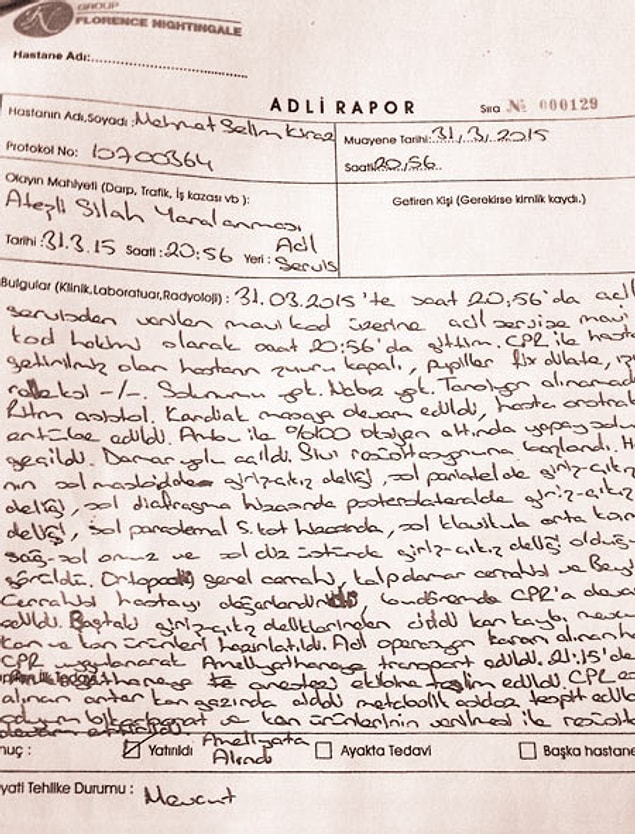 GROUP
FLORENCE NIGHTINGALE
Hastane Adı:
ADLİ RAPOR
Sıra № 000129
Hastanın Adı,Soyadı : Mehmet Selim Kiraz
Muayene Tarihi: 31/3/2015
Protokol No: 10700364
Saati: 20:56
Olayın Mahiyeti (Darp, Trafik, İş kazası vb ):
Getiren Kişi (Gerekirse kimlik kaydı.)
Ateşli Silah Yaralanması
Tarihi :31.3.15 Saati :20:56 Yeri : Acil Servis
Bulgular (Klinik,Laboratuar,Radyoloji) : 31.03.2015'te saat 20:56'da acil
servisden verilen mavi kod üzerine acil servise mavi
kod hekimi olarak saat 20:56'da gittim. CPR ile hasta
getirilmiş olan hastanın şuuru kapalı, pupiller fix dilate,
refleksi -/-. Solunumu yok. Nabız yok. Tansiyon alınamadı
Ritm asistol. Kardiak masaja devam edildi, hasta orotrak
entübe edildi. Ambu ile %100 oksijen altında yapay solu
geçildi. Damar yolu açıldı. Sıvı resüsitasyonuna başlandı. H
nın sol mastoidde giriş-çıkış deliği, sol parietalde giriş-çıkış
deliği, sol diafragma hizasında posterolateralde giriş-çıkış
deliği, sol parasternal 5. kot hizasında, sol klavikula orta
sağ-sol omuz ve sol diz üstünde giriş-çıkış deliği olduğu
görüldü. Ortopedi, genel cerrahi, kalp damar cerrahisi ve Beyi
Cerrahisi hastayı değerlendirdi, bu dönemde CPR'a deva
edildi. Baştaki giriş-çıkış deliklerinden ciddi kan kaybı, mevcu
kan ve kan ürünleri hazırlatıldı. Acil operasyon kararı alınan ha
CPR uygulanarak Ameliyathaneye transport edildi. 21:15'de
anestezi ekibine teslim edildi. CPR
alınan arter kan gazında ciddi metabolik asidoz tespit edildi
bikarbonat ve kan ürünlerinin verilmesi ile resüsita
devam
nuç : Yatırıldı Ameliyata Alındı Ayakta Tedavi Başka hastane
yati Tehlike Durumu : Mevcut